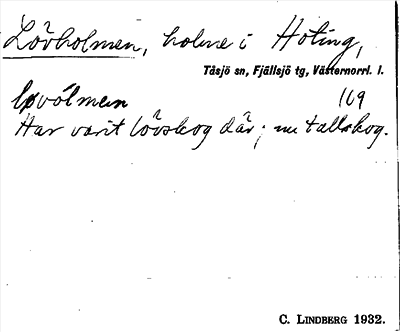 Lövholmen, holme i Hoting,
Tåsjö sn, Fjällsjö tg, Västernorrl. l.
169
Har varit lövskog där; nu tallskog.
C. LINDBERG 1932.